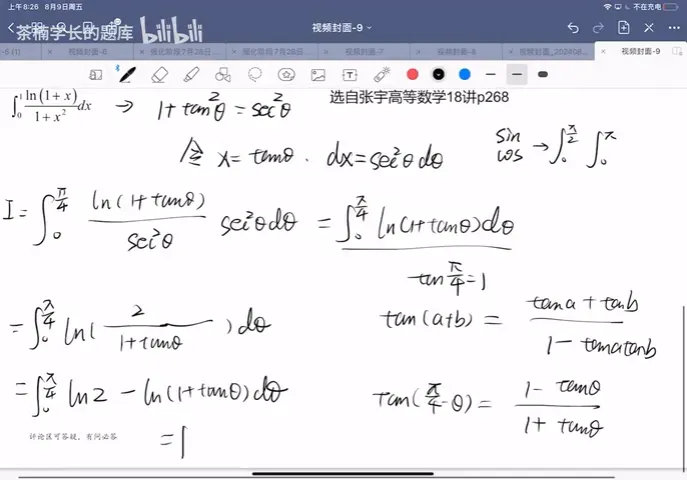 上午8:26 8月9日周五
不在充电
茶楠学长的题库 bilibili
视频封面-9
视频封面-6 强化阶段7月28日 强化阶段7月28日 视频封面-7 视频封面-8 视频封面_202408 视频封面-9
∫₀¹ ln(1+x)/(1+x²) dx → 1+tan²θ=sec²θ
选自张宇高等数学18讲p268
令 x=tanθ. dx=sec²θdθ
sin cos → ∫₀^(π/2) ∫₀^π
I=∫₀^(π/4) ln(1+tanθ)/sec²θ sec²θdθ = ∫₀^(π/4) ln(1+tanθ)dθ
tan π/4=1
=∫₀^(π/4) ln(2/(1+tanθ))dθ
tan(a+b)=(tana+tanb)/(1-tanatanb)
=∫₀^(π/4) ln2-ln(1+tanθ)dθ
tan(π/4-θ)=(1-tanθ)/(1+tanθ)
评论区可答疑，有问必答
=